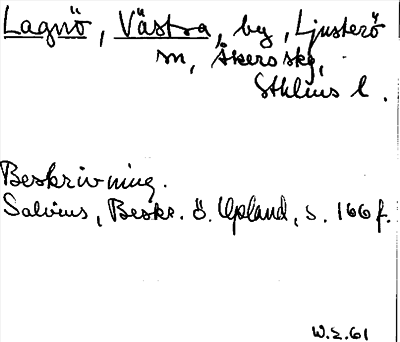 Lagnö, Västra, by, Ljusterö
sn, Åkers skg,
Sthlms l.
Beskrivning.
Salvius, Beskr. ö. Upland, s. 166 f.
W.Z.61